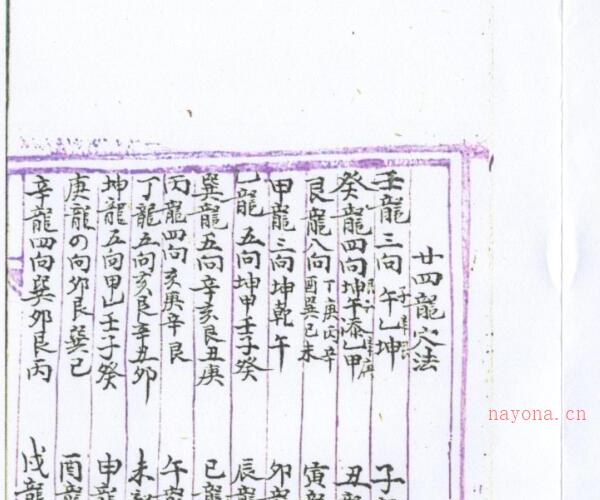 廿四龍穴法
壬龍三向 午乙坤
癸龍四向坤午 乙甲
艮龍八向丁庚丙辛酉巽巳未
甲龍三向坤乾午
乙龍五向坤甲壬子癸
巽龍五向辛亥艮丑庚
丙龍四向亥庚辛艮
丁龍五向亥艮辛丑卯
坤龍五向甲乙壬子癸
庚龍の向卯艮巽巳
辛龍四向巽卯艮丙
子
丑龍
寅龍
卯龍
辰龍
巳龍
午龍
未龍
申龍
酉龍
戌龍
nayona.cn